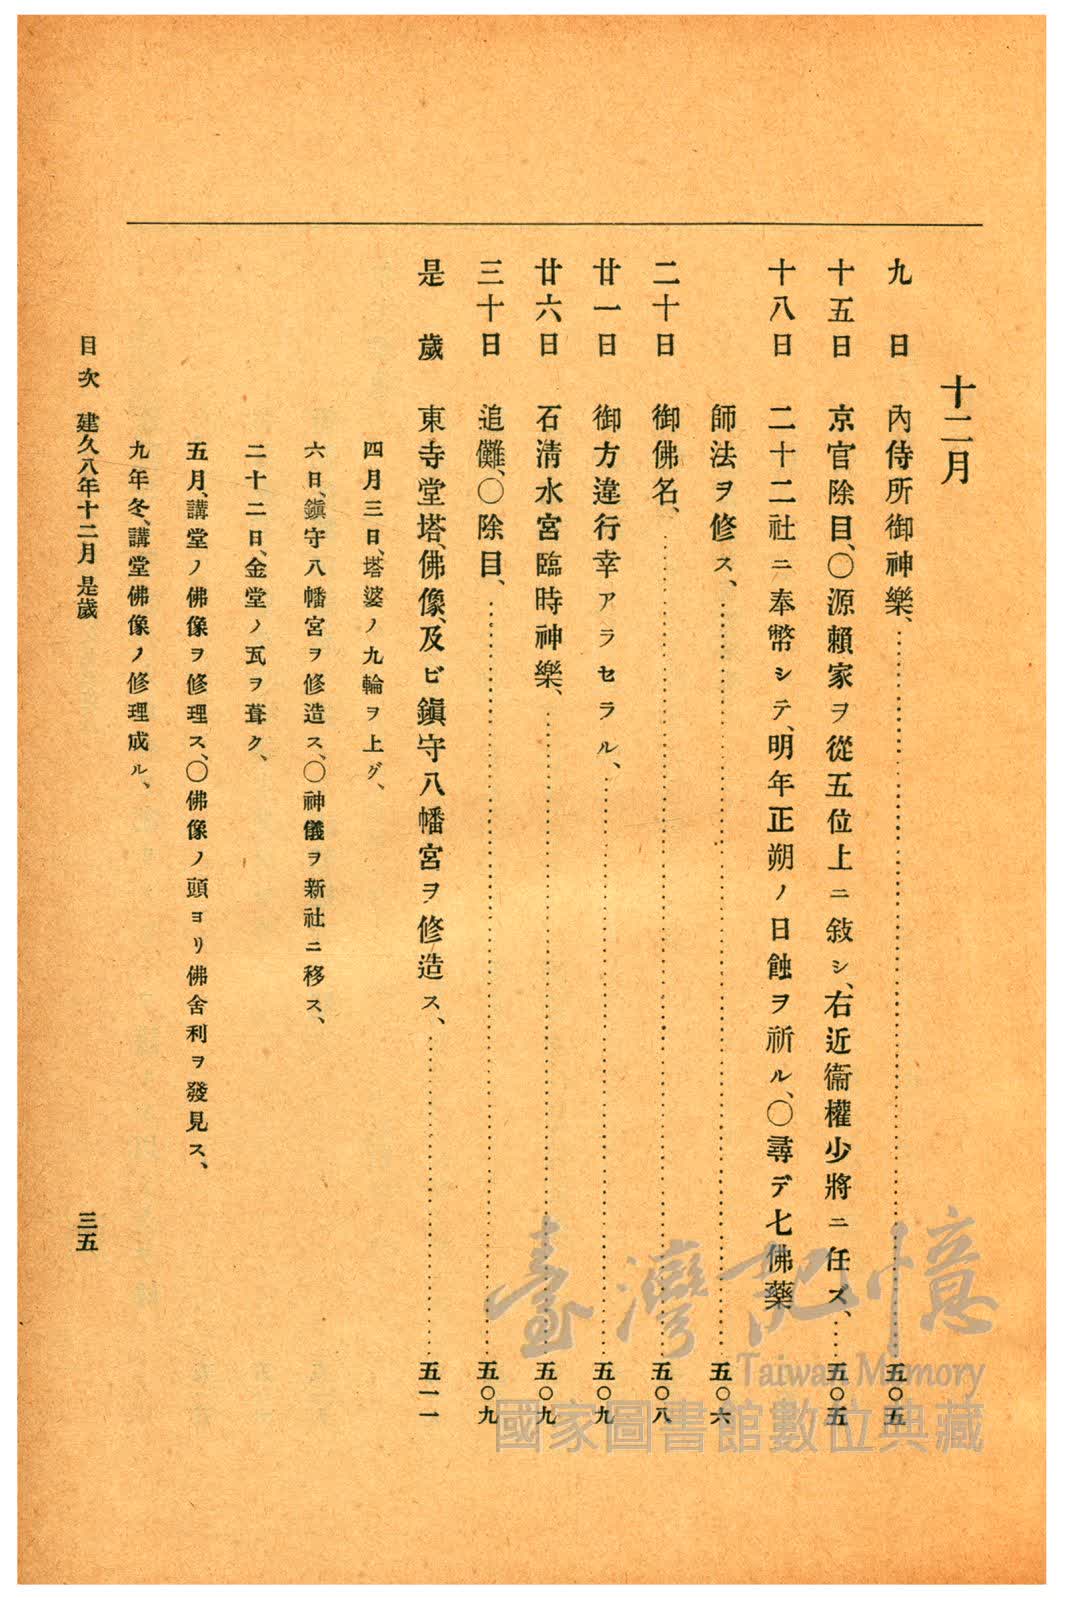 十二月
九日 內侍所御神樂、……五〇五
十五日 京官除目、〇源賴家ヲ從五位上ニ敍シ、右近衞權少將ニ任ズ、……五〇五
十八日 二十二社ニ奉幣シテ、明年正朔ノ日蝕ヲ祈ル、〇尋デ七佛藥
師法ヲ修ス、……五〇六
二十日 御佛名、……五〇八
廿一日 御方違行幸アラセラル、……五〇九
廿六日 石淸水宮臨時神樂、……五〇九
三十日 追儺、〇除目、……五〇九
是歲 東寺堂塔、佛像、及ビ鎭守八幡宮ヲ修造ス、……五一一
四月三日、塔婆ノ九輪ヲ上グ、
六日、鎭守八幡宮ヲ修造ス、〇神儀ヲ新社ニ移ス、
二十二日、金堂ノ瓦ヲ葺ク、
五月、講堂ノ佛像ヲ修理ス、〇佛像ノ頭ヨリ佛舍利ヲ發見ス、
九年冬、講堂佛像ノ修理成ル、
目次 建久八年十二月 是歲 三五
臺灣記憶
Taiwan Memory
國家圖書館數位典藏